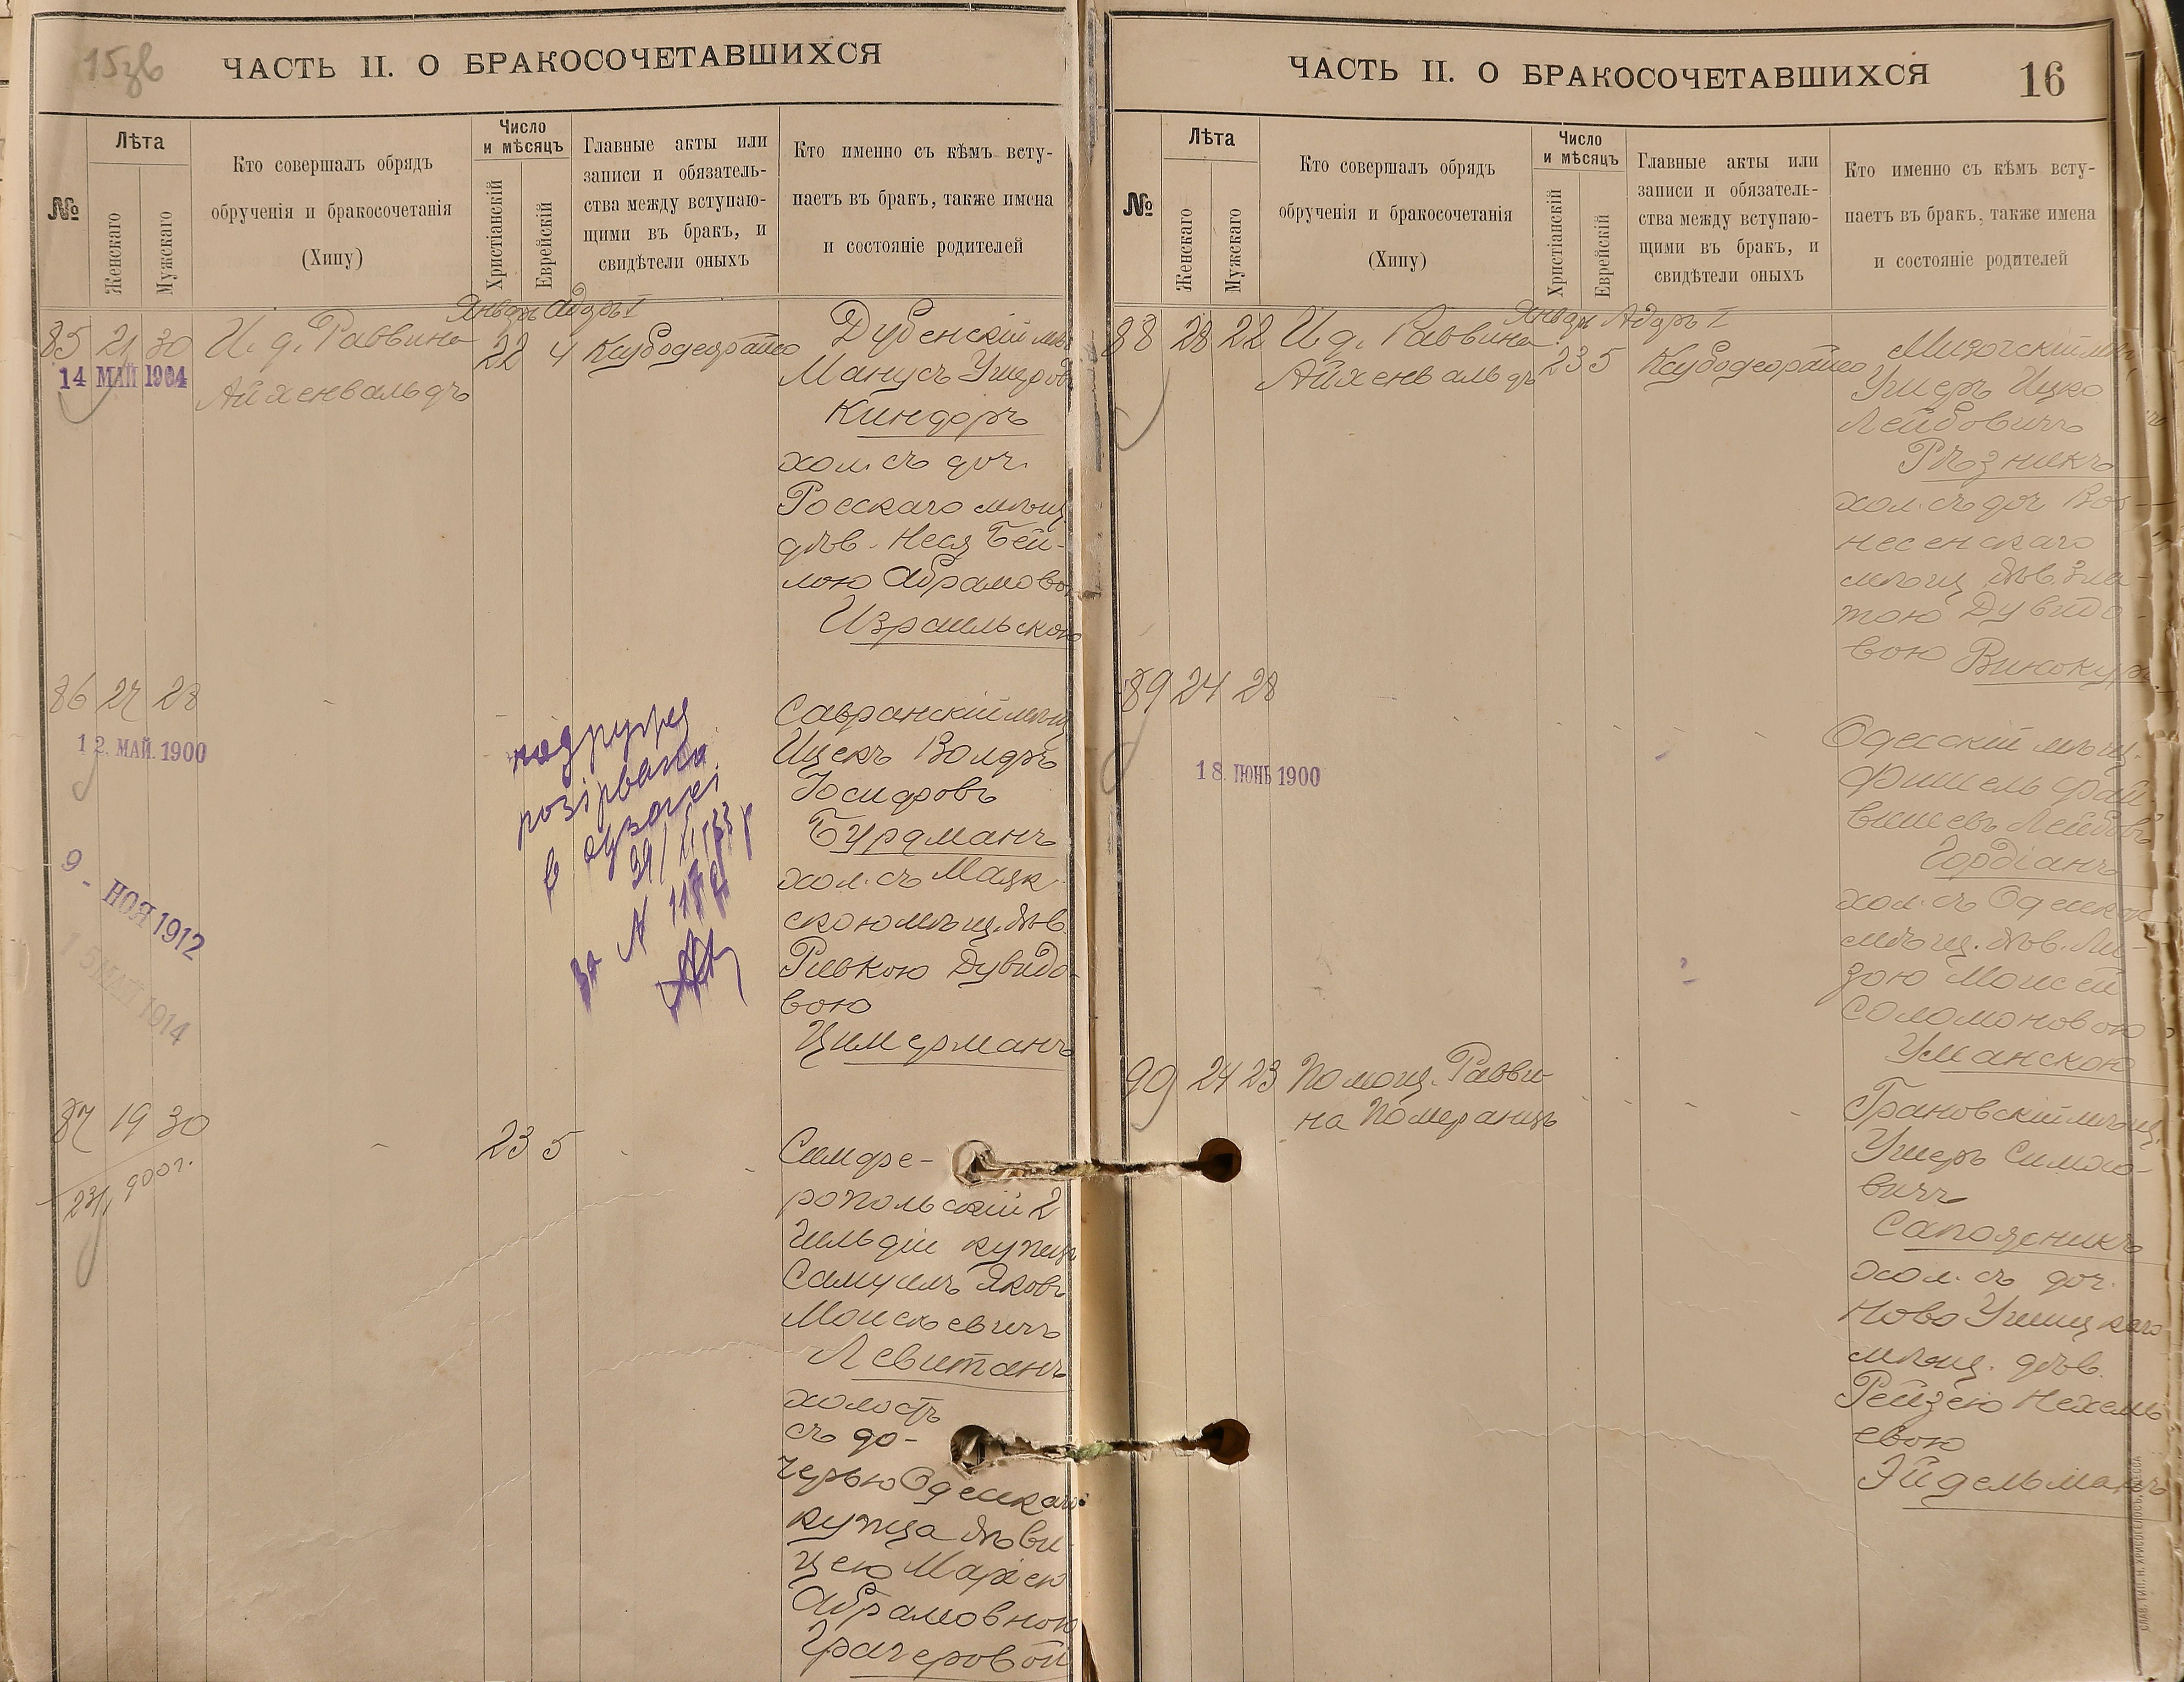 15зв
ЧАСТЬ II. О БРАКОСОЧЕТАВШИХСЯ
№
Лѣта
Женскаго
Мужскаго
Кто совершалъ обрядъ
обрученія и бракосочетанія
(Хипу)
Число
и мѣсяцъ
Христіанскій
Еврейскій
Главные акты или
записи и обязатель-
ства между вступаю-
щими въ бракъ, и
свидѣтели оныхъ
Кто именно съ кѣмъ всту-
паетъ въ бракъ, также имена
и состояніе родителей
Январь Адаръ I
85 21 30 И. д. Раввина 22 4
Айхенвальдъ
14 МАЙ 1904
Дубенскій мѣщ
Манусъ Умеровъ
Киндоръ
хол. съ доч.
Росскаго мѣщ
дѣв. Неся Бей-
лою Абрамово
Израильскою
86 27 28
12. МАЙ. 1900
9 - НОЯ 1912
15 МАЙ 1914
розірвано
в одзагсі
за N
Савранскій мѣщ
Ицекъ Волдръ
Іосифовъ
Бурдманъ
хол. съ Маяк
скою мѣщ. дѣв.
Ривкою Дувидо-
вою
Цимерманъ
87 19 30 23 5
900г.
Симфе-
ропольскій 2
гильдіи купецъ
Самуилъ Яковъ
Моисеевичъ
Левитанъ
холостъ
съ до-
черью Одесскаго
купца дѣви-
цею Маріею
Абрамовною
Грагеровой
ЧАСТЬ II. О БРАКОСОЧЕТАВШИХСЯ
16
№
Лѣта
Женскаго
Мужскаго
Кто совершалъ обрядъ
обрученія и бракосочетанія
(Хипу)
Число
и мѣсяцъ
Христіанскій
Еврейскій
Главные акты или
записи и обязатель-
ства между вступаю-
щими въ бракъ, и
свидѣтели оныхъ
Кто именно съ кѣмъ всту-
паетъ въ бракъ, также имена
и состояніе родителей
Январь Адаръ I
88 28 22 И. д. Раввина 23 5
Айхенвальдъ
Мизочскій мѣщ
Умеръ Ицко
Лейбовичъ
Рѣзникъ
хол. съ доч Воз-
несенскаго
мѣщ дѣв. Зла-
тою Дувидо-
вою Винокуръ
89 24 28
18 ІЮНЬ 1900
Одесскій мѣщ.
Фишель Фай-
вишевъ Лейбовъ
Гордіанъ
хол. съ Одесскою
мѣщ. дѣв. Ли-
зою Моисей
Соломоновою
Уманскою
90 24 23 Помощ. Равви-
на Померанцъ
Грановскій мѣщ.
Умеръ Симхо-
вичъ
Сапожникъ
хол. съ доч.
Ново Ушицкаго
мѣщ. дѣв.
Рейзею Нехемь
евою
Эйдельманъ